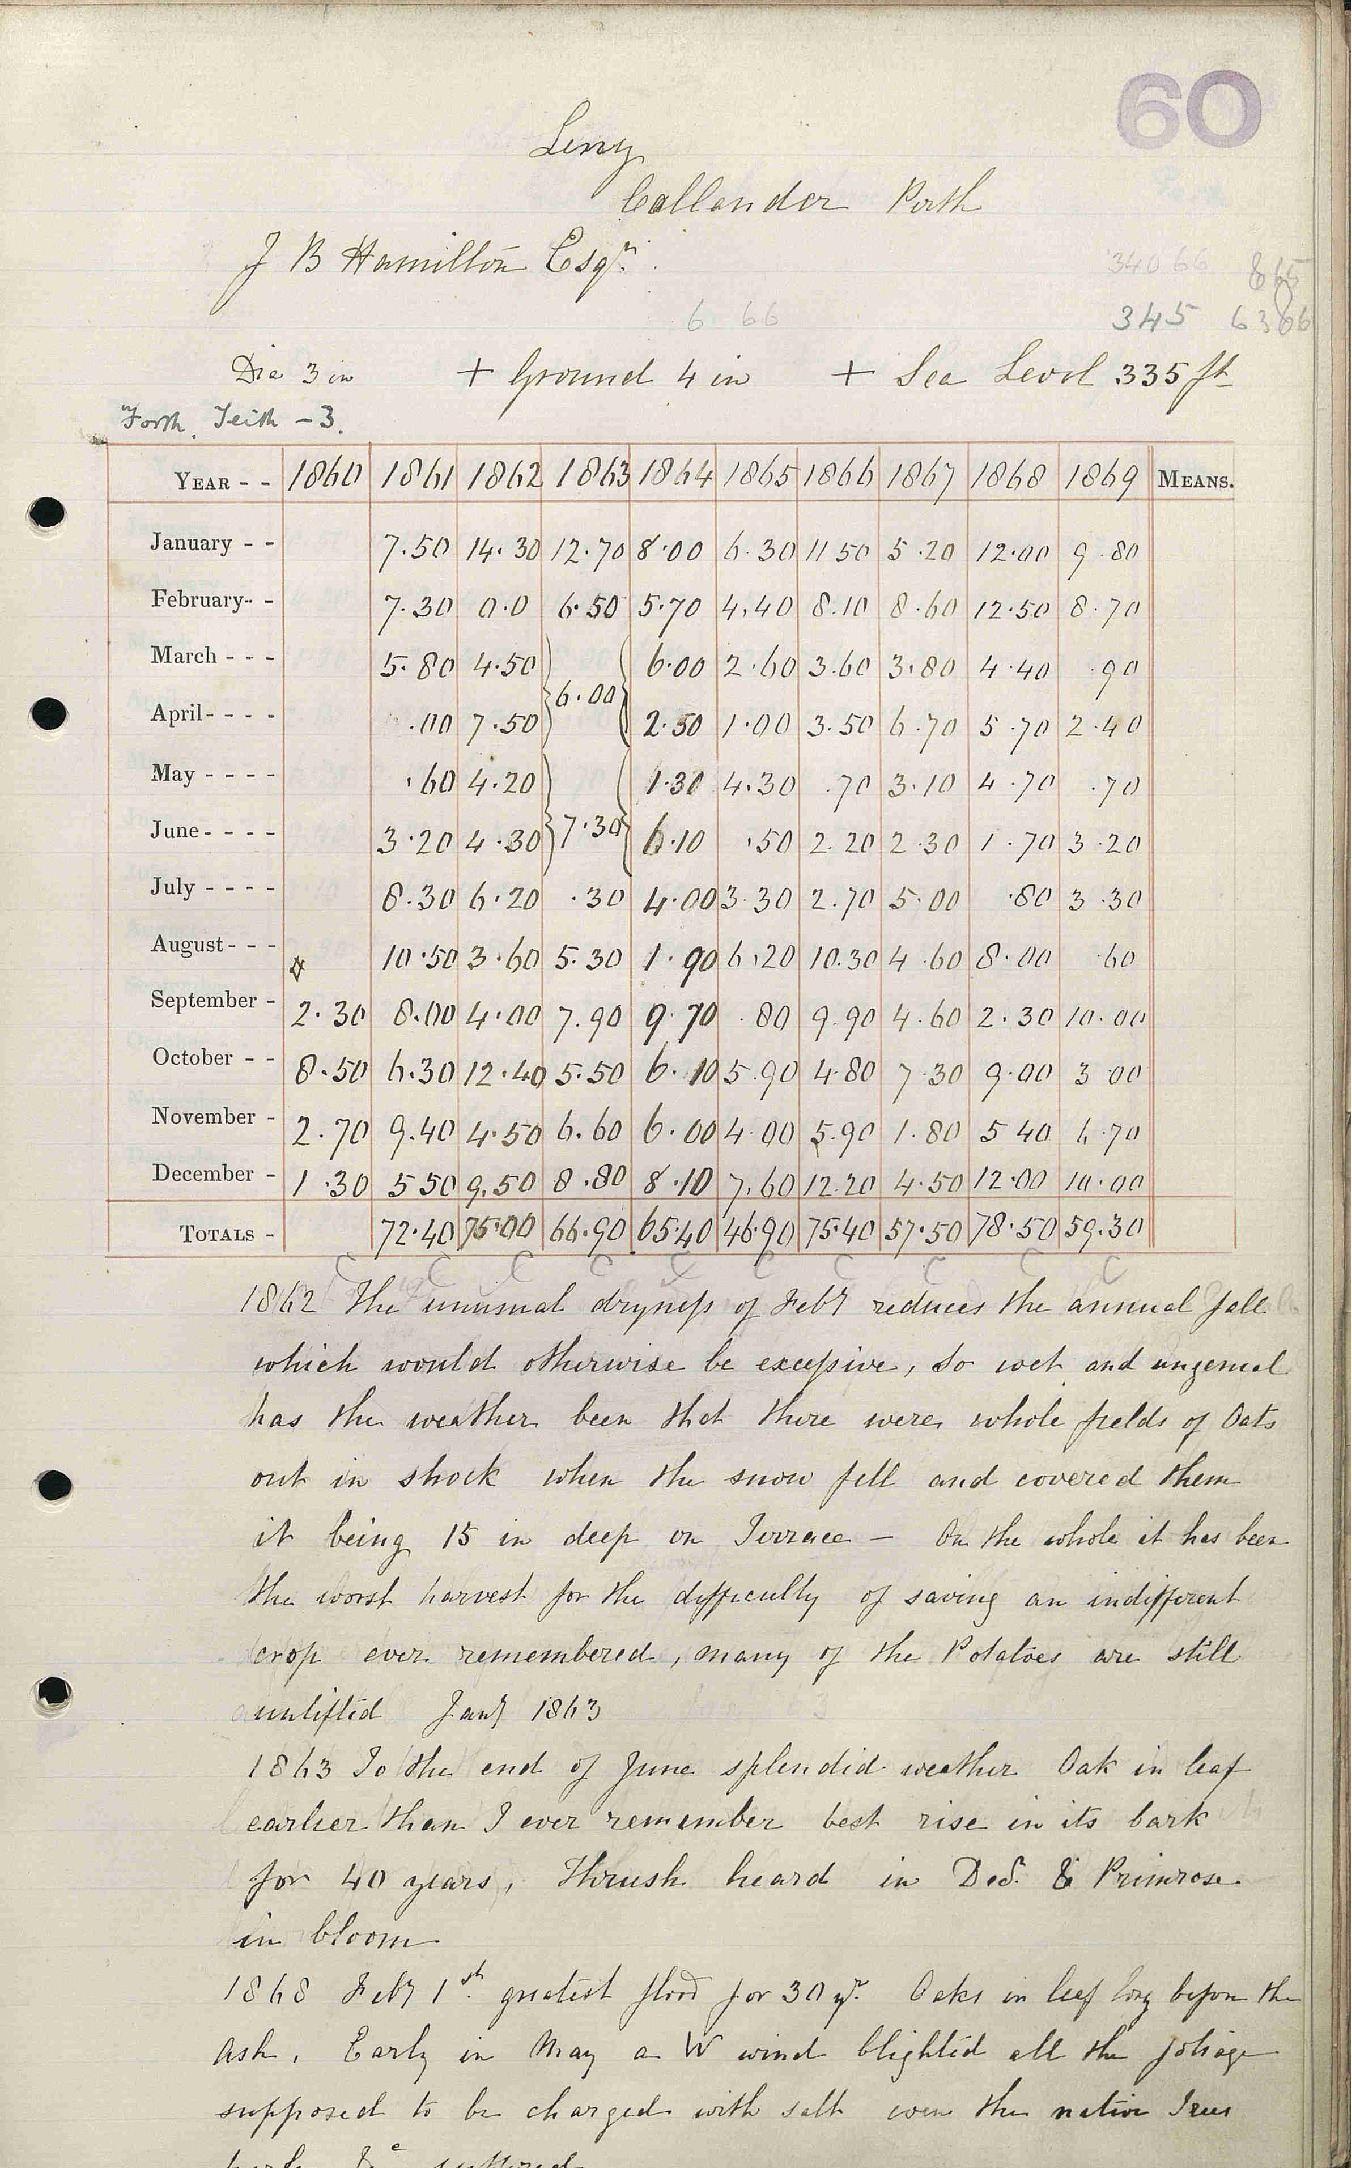 60
Leny
Callander Perth
J B Hamilton Esqr.
34066 865
6 66 345 6386
Dia 3 in + Ground 4 in + Sea Level 335 ft
Forth. Teith - 3.
YEAR - - 1860 1861 1862 1863 1864 1865 1866 1867 1868 1869 MEANS.
January - - 7.50 14.30 12.70 8.00 6.30 11 50 5.20 12.00 9.80
February- - 7.30 0.0 6.50 5.70 4.40 8.10 8.60 12.50 8.70
March - - - 5.80 4.50 6.00 2.60 3.60 3.80 4.40 .90
6.00
April- - - - .00 7.50 2.50 1.00 3.50 6.70 5.70 2.40
May - - - - .60 4.20 1.30 4.30 .70 3.10 4.70 .70
7.30
June- - - - 3.20 4.30 6.10 .50 2.20 2.30 1.70 3.20
July - - - - 8.30 6.20 .30 4.00 3.30 2.70 5.00 .80 3.30
August- - - 10.50 3.60 5.30 1.90 6.20 10.30 4.60 8.00 .60
September - 2.30 8.00 4.00 7.90 9.70 .80 9.90 4.60 2.30 10.00
October - - 8.50 6.30 12.40 5.50 6.10 5.90 4.80 7.30 9.00 3 00
November - 2.70 9.40 4.50 6.60 6.00 4.00 5.90 1.80 5 40 6.70
December - 1.30 5 50 9.50 8.80 8.10 7.60 12.20 4.50 12.00 10.00
TOTALS - 72.40 75.00 66.90 65.40 46.90 75.40 57.50 78.50 59.30
C C C C C C C C C
1862 The unusual dryness of Feby reduces the annual fall
which would otherwise be excessive, so wet and ungenial
has the weather been that there were whole fields of Oats
out in shock when the snow fell and covered them
it being 15 in deep on Terrace - On the whole it has been
the worst harvest for the difficulty of saving an indifferent
crop ever remembered, many of the Potatoes are still
unlifted Jany 1863
1863 To the end of June splendid weather Oak in leaf
earlier than I ever remember best rise in its bark
for 40 years, Thrush heard in Dec. & Primrose
in bloom
1868 Feby 1st. greatest flood for 30 yr. Oaks in leaf long before the
Ash. Early in May a W wind blighted all the foliage
supposed to be charged with salt even the native Trees
suffered